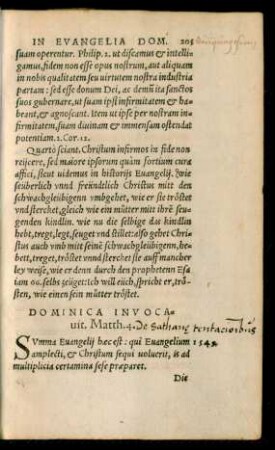 IN EVANGELIA DOM. 205
suam operentur. Philip. 2. ut discamus & intelli-
gamus, fidem non esse opus nostrum, aut aliquam
in nobis qualitatem seu uirtutem nostra industria
partam: sed esse donum Dei, ac demũ ita sanctos
suos gubernare, ut suam ipsi infirmitatem & ha-
beant, & agnoscant. Item ut ipse per nostram in-
firmitatem, suam diuinam & immensam ostendat
potentiam. 2. Cor. 12.
Quarto sciant, Christum infirmos in fide non
reijcere, sed maiore ipsorum quàm fortium cura
affici, sicut uidemus in historijs Euangelij. Wie
seüberlich vnnd freündtlich Christus mitt den
schwachgleübigenn vmbgehet, wie er sie tröstet
vnd stercket, gleich wie ein mütter mitt ihrẽ seu-
genden kindlin. wie nu die selbige das kindlin
hebt, tregt, legt, seuget vnd stillet: also gehet Chri-
stus auch vmb mitt seinẽ schwachgleübigenn, he-
bett, treget, tröstet vnnd stercket sie auff mancher
ley weise, wie er denn durch den prophetenn Esa
iam 66. selbs seügett: ich will euch, spricht er, trö-
sten, wie einen sein mütter tröstet.
DOMINICA INVOCA-
uit. Matth. 4. De Sathanę tentacionibus
SVmma Euangelij hæc est: qui Euangelium 1542
amplecti, & Christum sequi uoluerit, is ad
multiplicia certamina sese præparet.
Die